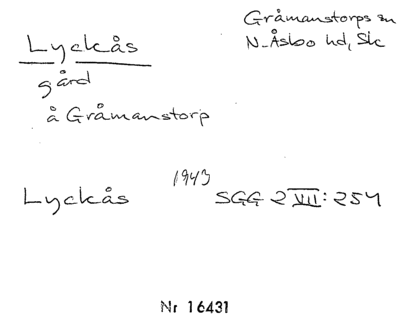 Lyckås
Gråmanstorps sn
N. Åsbo hd, Sk
gård
å Gråmanstorp
Lyckås 1943 SGG 2 VII: 254
Nr 16431